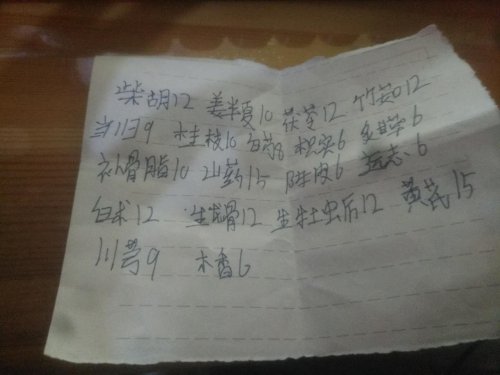 柴胡12 姜半夏10 茯苓12 竹茹12
当归9 桂枝10 白芍8 枳实6 炙甘草6
补骨脂10 山药15 陈皮6 远志6
白术12 生龙骨12 生牡蛎12 黄芪15
川芎9 木香6